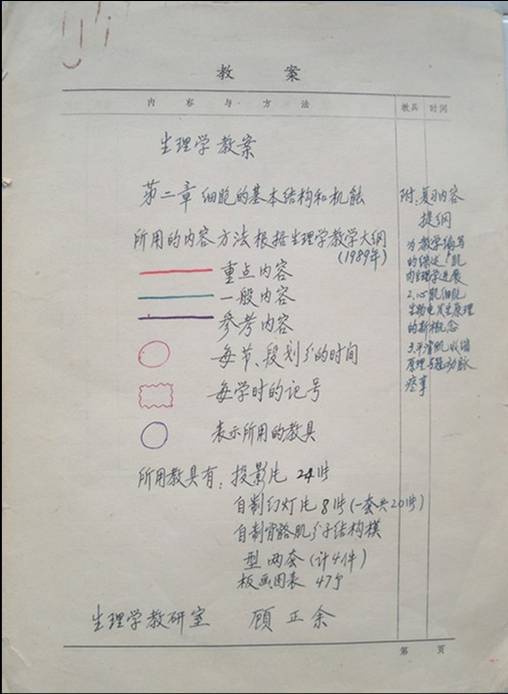 教 案
内 容 与 方 法 教具 时间
生理学教案
第二章 细胞的基本结构和机能
所用的内容方法根据生理学教学大纲
(1989年)
重点内容
一般内容
参考内容
每节、段划分的时间
每学时的记号
表示所用的教具
所用教具有: 投影片 24片
自制幻灯片 8片(一套共20片)
自制骨骼肌分子结构模
型 两套 (计4件)
板画图表 47个
生理学教研室 顾正余
附:复习内容
提纲
为教学编写
的综述1.肌
肉生理学进展
2.心肌细胞
生物电发生原理
的新概念
3.平滑肌收缩
原理与冠动脉
痉挛
第 页